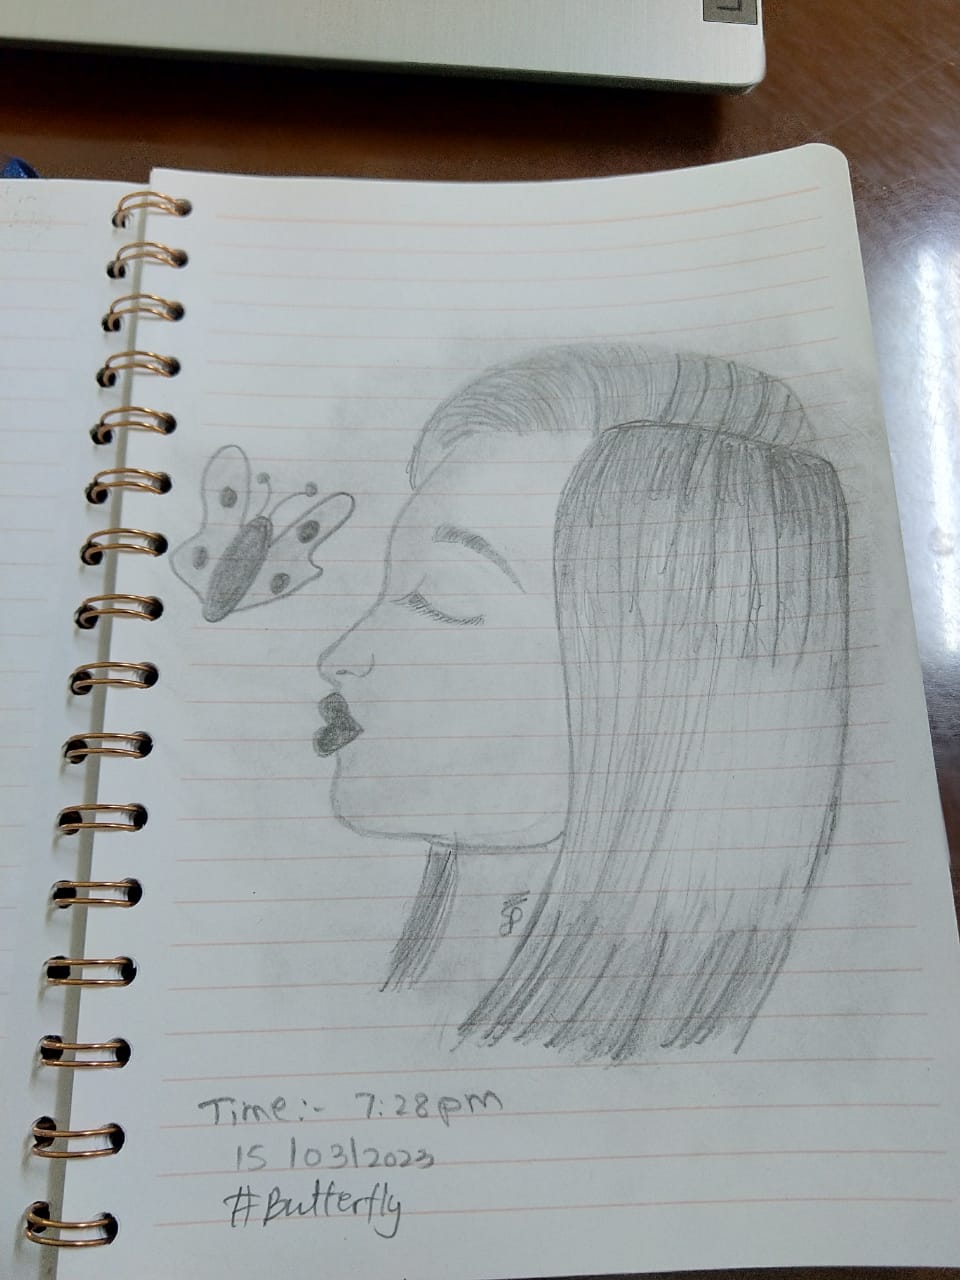 Time:- 7:28pm
15/03/2023
#Butterfly